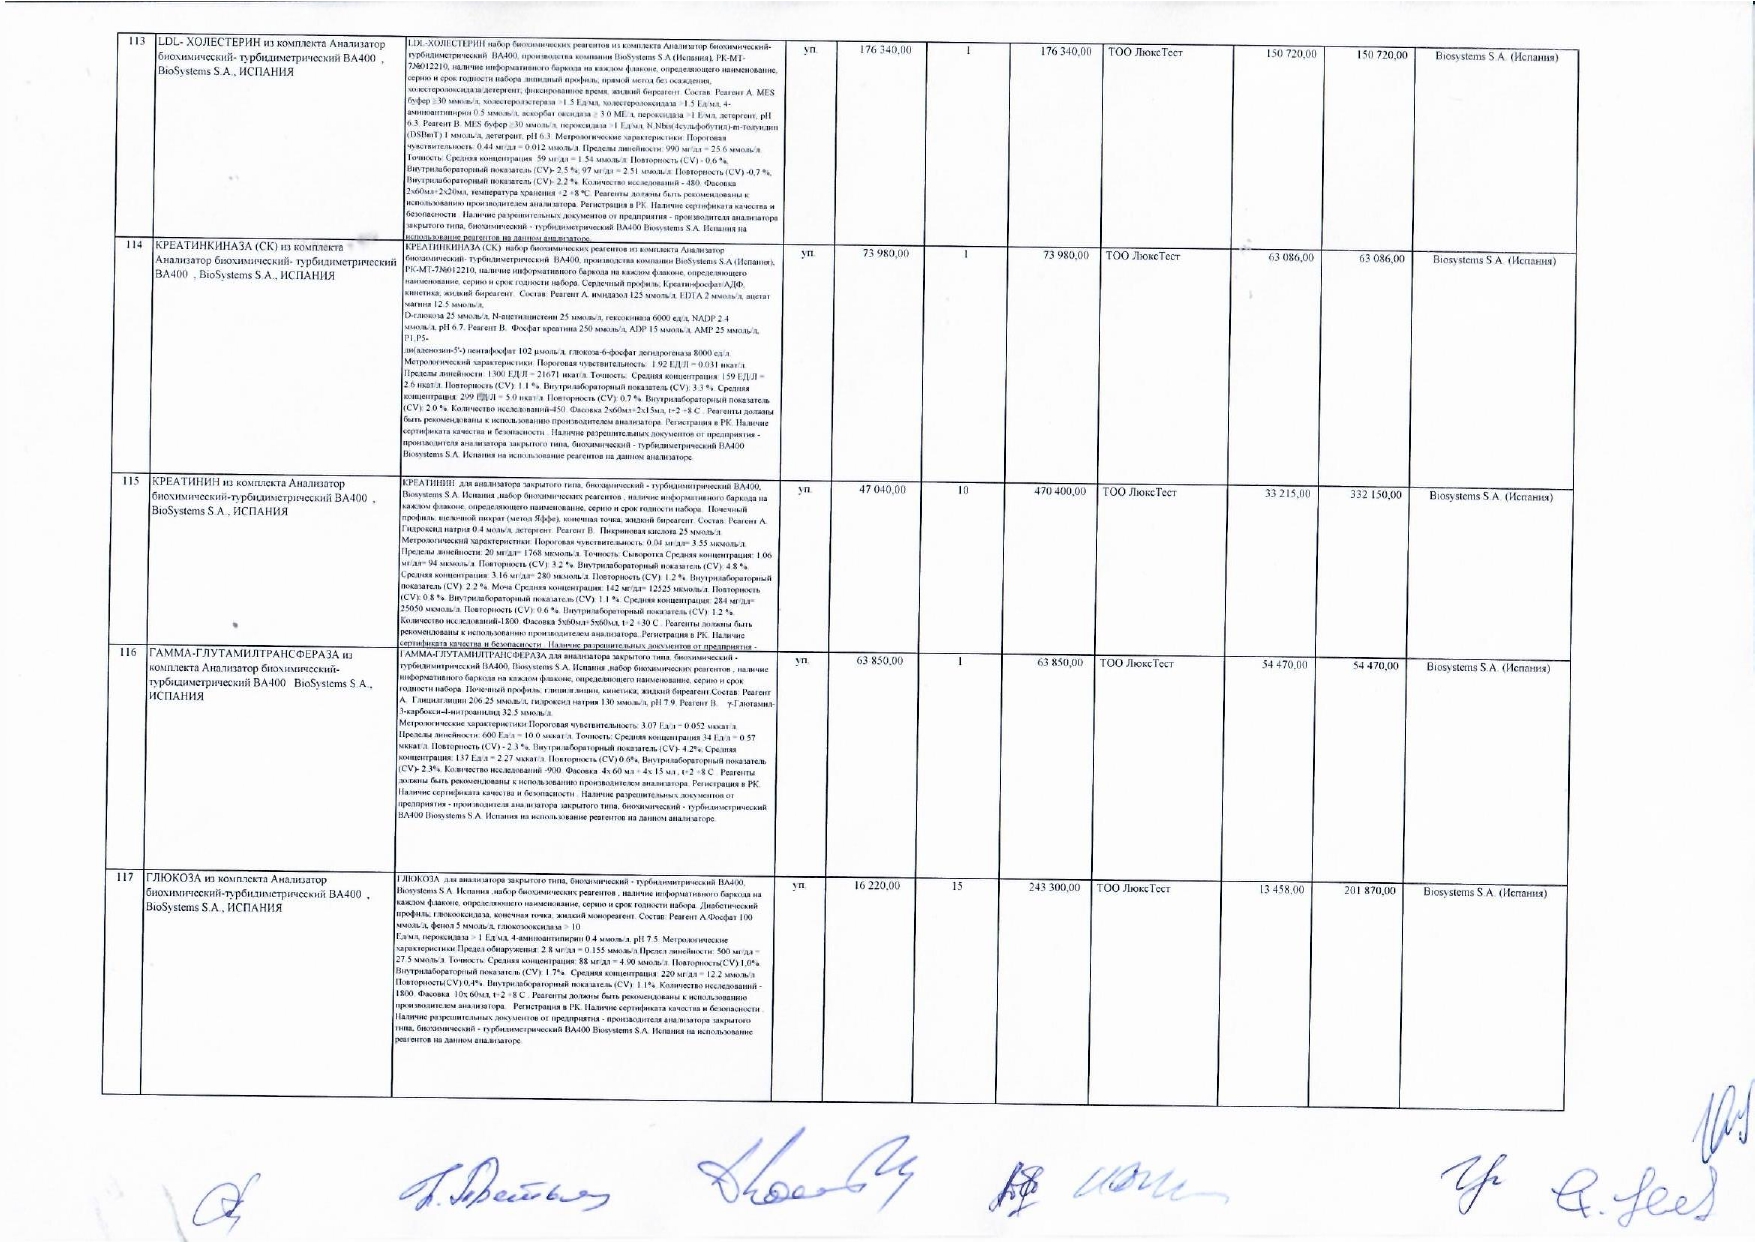 113 LDL- ХОЛЕСТЕРИН из комплекта Анализатор
биохимический- турбидиметрический ВА400 ,
BioSystems S.A., ИСПАНИЯ
LDL-ХОЛЕСТЕРИН набор биохимических реагентов из комплекта Анализатор биохимический-
турбидиметрический ВА400, производства компании BioSystems S.A (Испания), РК-МТ-
7№012210, наличие информативного баркода на каждом флаконе, определяющего наименование,
серию и срок годности набора липидный профиль, прямой метод без осаждения,
холестеролоксидаза/детергент, фиксированное время, жидкий биреагент. Состав: Реагент А. MES
буфер >30 ммоль/л, холестеролэстераза >1.5 Ед/мл, холестеролоксидаза >1.5 Ед/мл, 4-
аминоантипирин 0.5 ммоль/л, аскорбат оксидаза
6.3. Реагент В. MES буфер >30 ммоль/л, пероксидаза >1 Ед/мл,
(DSBmT) 1 ммоль/л, детергент, pH 6.3. Метрологические характеристики: Пороговая
чувствительность: 0.44 мг/дл = 0.012 ммоль/л. Пределы линейности: 990 мг/дл = 25.6 ммоль/л.
Точность: Средняя концентрация: 59 мг/дл = 1.54 ммоль/л. Повторность (CV) - 0.6 %,
Внутрилабораторный показатель (CV)- 2,5 %; 97 мг/дл = 2.51 ммоль/л. Повторность (CV) -0,7 %,
Внутрилабораторный показатель (CV)- 2.2 %. Количество исследований - 480. Фасовка
2х60мл+2х20мл, температура хранения +2 +8 °С. Реагенты должны быть рекомендованы к
использованию производителем анализатора. Регистрация в РК. Наличие сертификата качества и
безопасности . Наличие разрешительных документов от предприятия - производителя анализатора
закрытого типа, биохимический - турбидиметрический ВА400 Biosystems S.A. Испания на
использование реагентов на данном анализаторе.
уп. 176 340,00 1 176 340,00 ТОО ЛюксТест 150 720,00 150 720,00 Biosystems S.A. (Испания)
114 КРЕАТИНКИНАЗА (СК) из комплекта
Анализатор биохимический- турбидиметрический
ВА400 , BioSystems S.A., ИСПАНИЯ
КРЕАТИНКИНАЗА (СК) набор биохимических реагентов из комплекта Анализатор
биохимический- турбидиметрический ВА400, производства компании BioSystems S.A (Испания),
РК-МТ-7№012210, наличие информативного баркода на каждом флаконе, определяющего
наименование, серию и срок годности набора. Сердечный профиль; Креатинфосфат/АДФ,
кинетика, жидкий биреагент. Состав: Реагент А. имидазол 125 ммоль/л, EDTA 2 ммоль/л, ацетат
магния 12.5 ммоль/л,
D-глюкоза 25 ммоль/л, N-ацетилцистеин 25 ммоль/л, гексокиназа 6000 ед/л, NADP 2.4
ммоль/л, pH 6.7. Реагент В. Фосфат креатина 250 ммоль/л, ADP 15 ммоль/л, AMP 25 ммоль/л,
P1,P5-
ди(аденозин-5'-) пентафосфат 102 µмоль/л, глюкоза-6-фосфат дегидрогеназа 8000 ед/л.
Метрологический характеристики: Пороговая чувствительность: 1.92 ЕД/Л = 0.031 нкат/л.
Пределы линейности: 1300 ЕД/Л = 21671 нкат/л. Точность: Средняя концентрация: 159 ЕД/Л =
2.6 нкат/л. Повторность (CV): 1.1 %. Внутрилабораторный показатель (CV): 3.3 %. Средняя
концентрация: 299 ЕД/Л = 5.0 нкат/л. Повторность (CV): 0.7 %. Внутрилабораторный показатель
(CV): 2.0 %. Количество исследований-450. Фасовка 2х60мл+2х15мл, t+2 +8 С . Реагенты должны
быть рекомендованы к использованию производителем анализатора. Регистрация в РК. Наличие
сертификата качества и безопасности . Наличие разрешительных документов от предприятия -
производителя анализатора закрытого типа, биохимический - турбидиметрический ВА400
Biosystems S.A. Испания на использование реагентов на данном анализаторе.
уп. 73 980,00 1 73 980,00 ТОО ЛюксТест 63 086,00 63 086,00 Biosystems S.A. (Испания)
115 КРЕАТИНИН из комплекта Анализатор
биохимический-турбидиметрический ВА400 ,
BioSystems S.A., ИСПАНИЯ
КРЕАТИНИН для анализатора закрытого типа, биохимический - турбидиметрический ВА400,
Biosystems S.A. Испания ,набор биохимических реагентов , наличие информативного баркода на
каждом флаконе, определяющего наименование, серию и срок годности набора. Почечный
профиль, щелочной пикрат (метод Яффе), конечная точка, жидкий биреагент. Состав: Реагент А.
Гидроксид натрия 0.4 моль/л, детергент. Реагент В. Пикриновая кислота 25 ммоль/л.
Метрологический характеристики: Пороговая чувствительность: 0.04 мг/дл= 3.55 мкмоль/л.
Пределы линейности: 20 мг/дл= 1768 мкмоль/л. Точность: Сыворотка Средняя концентрация: 1.06
мг/дл= 94 мкмоль/л. Повторность (CV): 3.2 %. Внутрилабораторный показатель (CV): 4.8 %.
Средняя концентрация: 3.16 мг/дл= 280 мкмоль/л. Повторность (CV): 1.2 %. Внутрилабораторный
показатель (CV): 2.2 %. Моча Средняя концентрация: 142 мг/дл= 12525 мкмоль/л. Повторность
(CV): 0.8 %. Внутрилабораторный показатель (CV): 1.1 %. Средняя концентрация: 284 мг/дл=
25050 мкмоль/л. Повторность (CV): 0.6 %. Внутрилабораторный показатель (CV): 1.2 %.
Количество исследований-1800. Фасовка 5х60мл+5х60мл, t+2 +30 С . Реагенты должны быть
рекомендованы к использованию производителем анализатора. Регистрация в РК. Наличие
сертификата качества и безопасности . Наличие разрешительных документов от предприятия -
уп. 47 040,00 10 470 400,00 ТОО ЛюксТест 33 215,00 332 150,00 Biosystems S.A. (Испания)
116 ГАММА-ГЛУТАМИЛТРАНСФЕРАЗА из
комплекта Анализатор биохимический-
турбидиметрический ВА400 BioSystems S.A.,
ИСПАНИЯ
ГАММА-ГЛУТАМИЛТРАНСФЕРАЗА для анализатора закрытого типа, биохимический -
турбидиметрический ВА400, Biosystems S.A. Испания ,набор биохимических реагентов , наличие
информативного баркода на каждом флаконе, определяющего наименование, серию и срок
годности набора. Почечный профиль; глицилглицин, кинетика, жидкий биреагент.Состав: Реагент
А. Глицилглицин 206.25 ммоль/л, гидроксид натрия 130 ммоль/л, pH 7.9. Реагент В. γ-Глютамил-
3-карбокси-4-нитроанилид 32.5 ммоль/л.
Метрологические характеристики Пороговая чувствительность: 3.07 Ед/л = 0.052 мккат/л.
Пределы линейности: 600 Ед/л = 10.0 мккат/л. Точность: Средняя концентрация 34 Ед/л = 0.57
мккат/л. Повторность (CV) - 2.3 %, Внутрилабораторный показатель (CV)- 4.2%. Средняя
концентрация: 137 Ед/л = 2.27 мккат/л. Повторность (CV) 0.6%, Внутрилабораторный показатель
(CV)- 2.3%. Количество исследований -900. Фасовка 4х 60 мл + 4х 15 мл , t+2 +8 С . Реагенты
должны быть рекомендованы к использованию производителем анализатора. Регистрация в РК.
Наличие сертификата качества и безопасности . Наличие разрешительных документов от
предприятия - производителя анализатора закрытого типа, биохимический - турбидиметрический
ВА400 Biosystems S.A. Испания на использование реагентов на данном анализаторе.
уп. 63 850,00 1 63 850,00 ТОО ЛюксТест 54 470,00 54 470,00 Biosystems S.A. (Испания)
117 ГЛЮКОЗА из комплекта Анализатор
биохимический-турбидиметрический ВА400 ,
BioSystems S.A., ИСПАНИЯ
ГЛЮКОЗА для анализатора закрытого типа, биохимический - турбидиметрический ВА400,
Biosystems S.A. Испания ,набор биохимических реагентов , наличие информативного баркода на
каждом флаконе, определяющего наименование, серию и срок годности набора. Диабетический
профиль, глюкооксидаза, конечная точка, жидкий монореагент. Состав: Реагент А.Фосфат 100
ммоль/л, фенол 5 ммоль/л, глюкозооксидаза > 10
Ед/мл, пероксидаза > 1 Ед/мл, 4-аминоантипирин 0.4 ммоль/л, pH 7.5. Метрологические
характеристики Предел обнаружения: 2.8 мг/дл = 0.155 ммоль/л.Предел линейности: 500 мг/дл =
27.5 ммоль/л. Точность: Средняя концентрация: 88 мг/дл = 4.90 ммоль/л. Повторность(CV):1,0%.
Внутрилабораторный показатель (CV): 1.7%. Средняя концентрация: 220 мг/дл = 12.2 ммоль/л
Повторность(CV):0,4%. Внутрилабораторный показатель (CV): 1.1%. Количество исследований -
1800. Фасовка 10х 60мл, t+2 +8 С . Реагенты должны быть рекомендованы к использованию
производителем анализатора. Регистрация в РК. Наличие сертификата качества и безопасности .
Наличие разрешительных документов от предприятия - производителя анализатора закрытого
типа, биохимический - турбидиметрический ВА400 Biosystems S.A. Испания на использование
реагентов на данном анализаторе.
уп. 16 220,00 15 243 300,00 ТОО ЛюксТест 13 458,00 201 870,00 Biosystems S.A. (Испания)